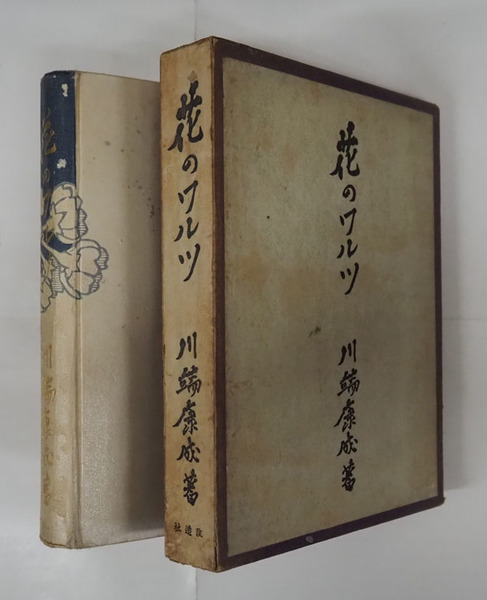 花のワルツ
川端康成著
花のワルツ
川端康成著
改造社
花のワルツ
川端康成著